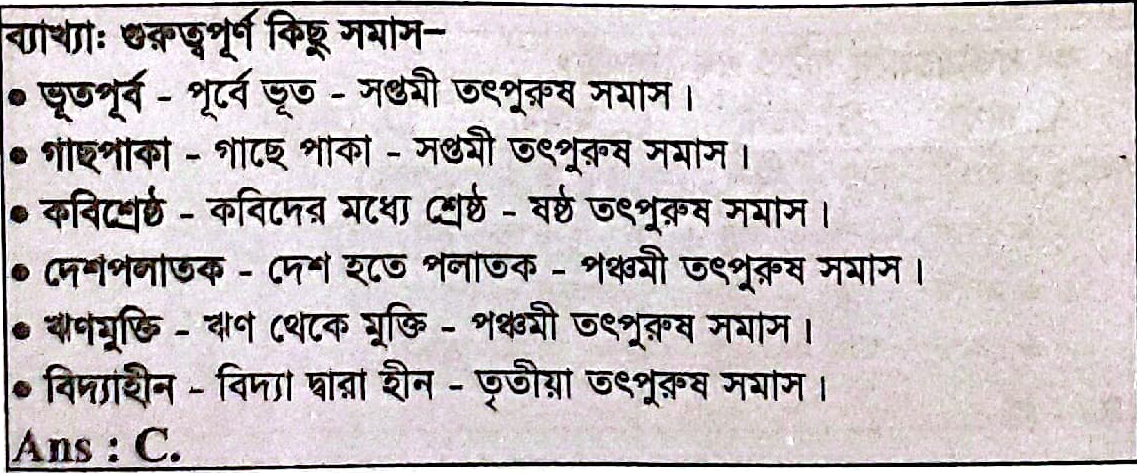 ব্যাখ্যাঃ গুরুত্বপূর্ণ কিছু সমাস–
• ভূতপূর্ব - পূর্বে ভূত - সপ্তমী তৎপুরুষ সমাস।
• গাছপাকা - গাছে পাকা - সপ্তমী তৎপুরুষ সমাস।
• কবিশ্রেষ্ঠ - কবিদের মধ্যে শ্রেষ্ঠ - ষষ্ঠ তৎপুরুষ সমাস।
• দেশপলাতক - দেশ হতে পলাতক - পঞ্চমী তৎপুরুষ সমাস।
• ঋণমুক্তি - ঋণ থেকে মুক্তি - পঞ্চমী তৎপুরুষ সমাস।
• বিদ্যাহীন - বিদ্যা দ্বারা হীন - তৃতীয়া তৎপুরুষ সমাস।
Ans : C.